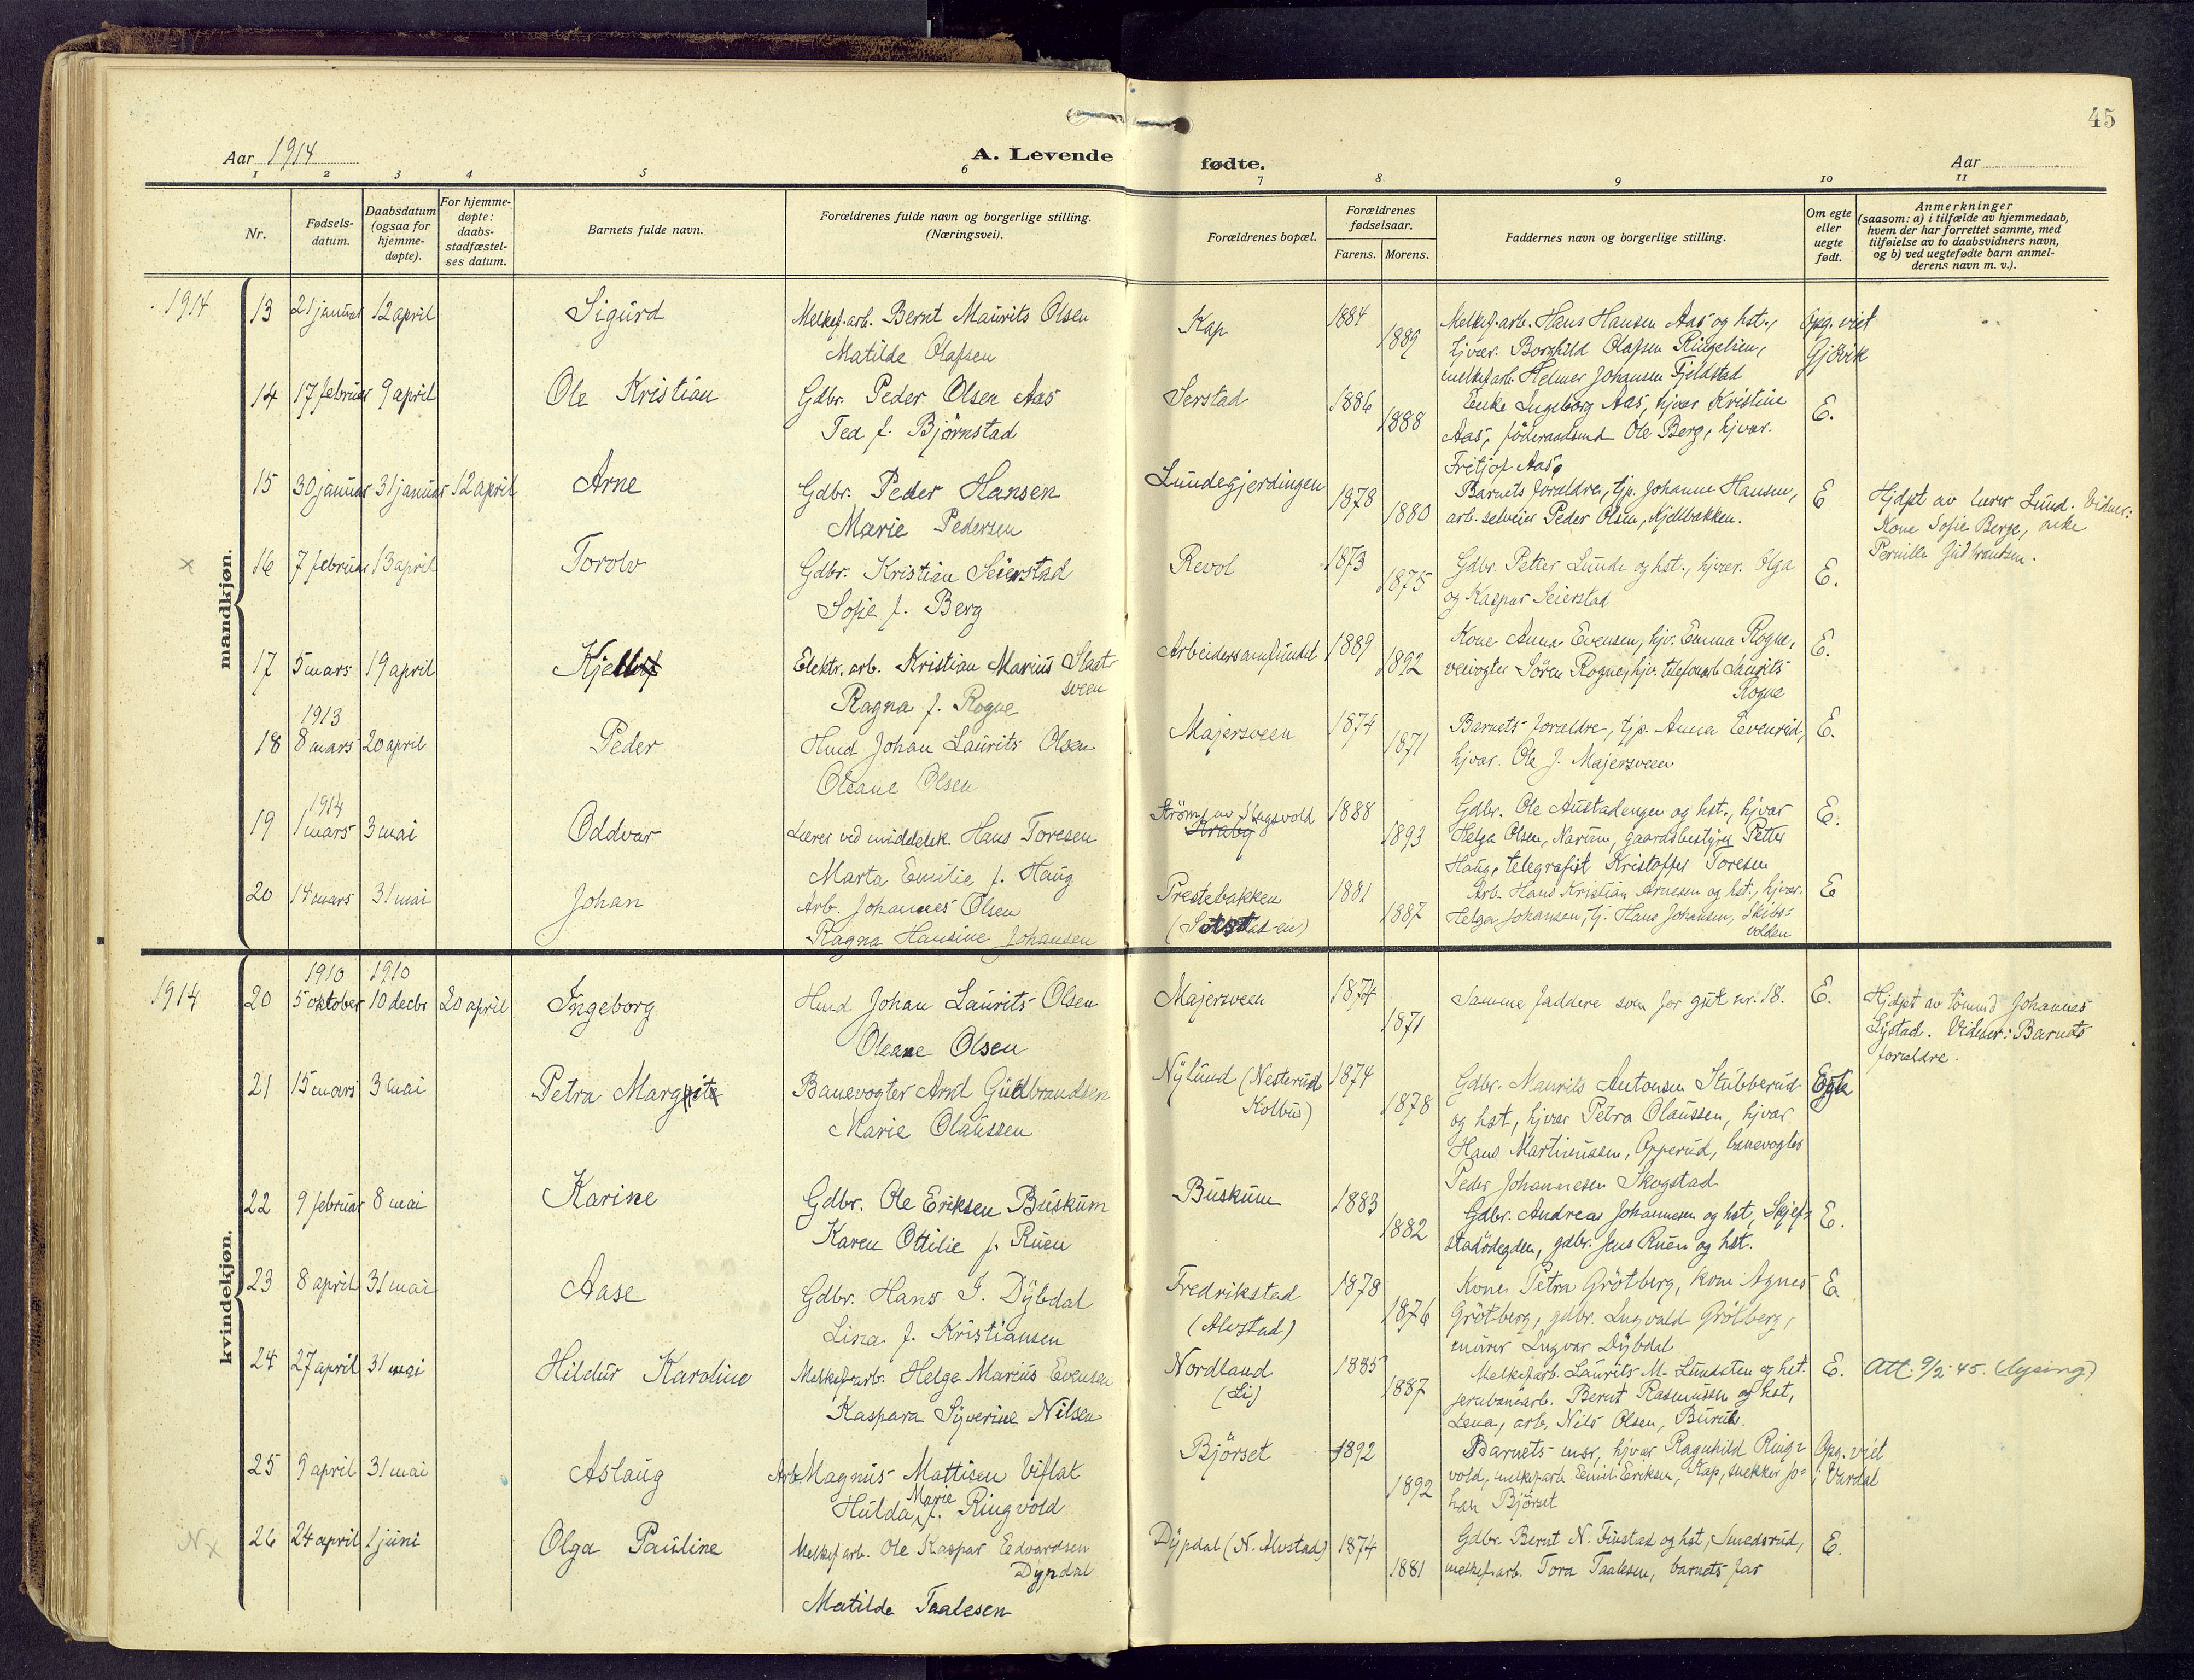 45
Aar 1914
A. Levende fødte.
Aar
1 2 3 4 5 6 7 8 9 10 11
Nr.
Fødsels-
datum.
Daabsdatum
(ogsaa for
hjemme-
døpte).
For hjemme-
døpte:
daabs-
stadfæstel-
ses datum.
Barnets fulde navn.
Forældrenes fulde navn og borgerlige stilling.
(Næringsvei).
Forældrenes bopæl.
Forældrenes
fødselsaar.
Farens. Morens.
Faddernes navn og borgerlige stilling.
Om egte
eller
uegte
født.
Anmerkninger
(saasom: a) i tilfælde av hjemmedaab,
hvem der har forrettet samme, med
tilføielse av to daabsvidners navn,
og b) ved uegtefødte barn anmel-
derens navn m. v.).
mandkjøn.
1914 13 21 januar 12 april Sigurd Melkef.arb. Bernt Maurits Olsen Kap 1884 Melkef.arb. Hans Hansen Aas og hst., Opg. viet
Matilde Olafsen 1889 hjvær. Borghild Olafsen Ringelien, Gjøvik
melkef.arb. Helmer Johansen Fjeldstad
14 17 februar 9 april Ole Kristian Gdbr. Peder Olsen Aas Serstad 1886 Enke Ingeborg Aas, hjvær Kristine E.
Tea f. Björnstad 1888 Aas, föderaadsmd Ole Berg, hjvær.
Fritjof Aas.
15 30 januar 31 januar 12 april Arne Gdbr. Peder Hansen Lundegjerdingen 1878 Barnets foraldre, tjp. Johanne Hansen, E Hjdpt av lærer Lund. Vidner:
Marie Pedersen 1880 arb. selveier Peder Olsen, Kjelbakken. Kone Sofie Berge, enke
Pernille Gulbrandsen.
x 16 7 februar 13 april Torolv Gdbr. Kristian Seierstad Revol 1873 Gdbr. Petter Lunde og hst., hjvær. Olga E.
Sofie f. Berg 1875 og Kaspar Seierstad
17 5 mars 19 april Kjell Elektr. arb. Kristian Marius Slaat- Arbeidersamfundet 1889 Kone Anna Evensen, hjv. Emma Rogne, E.
sveen
Ragna f. Rogne 1892 veivogter Sören Rogne, hjv. telefonarb Laurits
Rogne
1913
18 8 mars 20 april Peder Hmd Johan Laurits Olsen Majersveen 1874 Barnets foraldre, tjp. Anna Evenrud, E.
Oleane Olsen 1871 hjvær. Ole J. Majersveen
1914
19 1 mars 3 mai Oddvar Lærer ved middelsk. Hans Toresen Ström av Skagsvold 1888 Gdbr. Ole Austadengen og hst., hjvær E.
Marta Emilie f. Haug Kraby 1893 Helga Olsen, Narum, gaardsbestyrer Petter
Haug, telegrafist Kristoffer Toresen
20 14 mars 31 mai Johan Arb. Johannes Olsen Prestebakken 1881 Arb. Hans Kristian Arnesen og hst., hjvær. E
Ragna Hansine Johansen 1887 Helga Johansen, tj. Hans Johansen, Skibs-
volden
kvindekjøn.
1910 1910
1914 20 5 oktober 10 decbr 20 april Ingeborg Hmd Johan Laurits Olsen Majersveen 1874 Samme faddere som for gut nr. 18. E. Hjdpt av tömmd Johannes
Oleane Olsen 1871 Lystad. Vidner: Barnets
foreldre.
21 15 mars 3 mai Petra Margit Banevogter Arnt Gudbrandsen Nylund (Nesterud 1874 Gdbr. Maurits Antonsen Stubberud Egte
Marie Olaussen Kolbu) 1878 og hst, hjvær Petra Olaussen, hjvær
Hans Martinussen, Opperud, banevogter
Peder Johannesen Skogstad
22 9 februar 8 mai Karine Gdbr. Ole Eriksen Buskum Buskum 1883 Gdbr. Andreas Johannesen og hst, Skjef- E.
Karen Ottilie f. Ruen 1882 stadödegden, gdbr. Jens Ruen og hst.
23 8 april 31 mai Aase Gdbr. Hans J. Dybdal Fredrikstad 1878 Kone Petra Grötberg, kone Agnes E.
Lina f. Kristiansen (Alvstad) 1876 Grötberg, gdbr. Ingvald Grötberg,
murer Ingvar Dybdal
24 27 april 31 mai Hildur Karoline Melkef.arb. Helge Marius Evensen Nordland 1885 Melkef.arb. Laurits M. Lundsten og hst. E. Att. 9/2 45. (lysing)
Kaspara Syverine Nilsen (Li) 1887 jernbanearb. Bernt Rasmussen og hst,
Lena, arb. Nils Olsen,
25 9 april 31 mai Aslaug Arb. Magnus Mattisen Viflat Björset 1892 Barnets mor, hjvær Ragnhild Ring- Opg. viet
Marie
Hulda f. Ringvold 1892 vold, melkef.arb Emil Eriksen, Kap, snekker Jo- i Vardal
han Björset
N x 26 24 april 1 juni Olga Pauline Melkef.arb. Ole Kaspar Edvardsen Dypdal (N. Alvstad) 1874 Gdbr. Bernt N. Finstad og hst, Smedsrud, E.
Dypdal
Matilde Taalesen 1881 melkef.arb. Tora Taalesen, barnets far